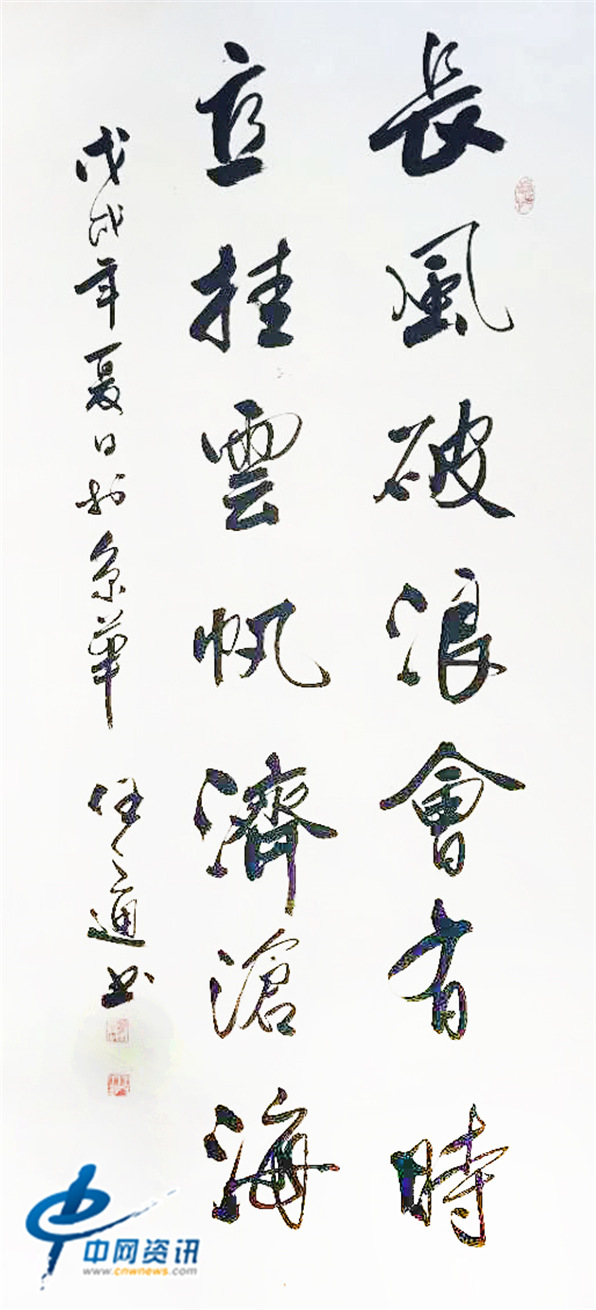 長風破浪會有時
直挂雲帆濟滄海
戊戌年夏日於京華
通书
中网资讯
www.cnwnews.com